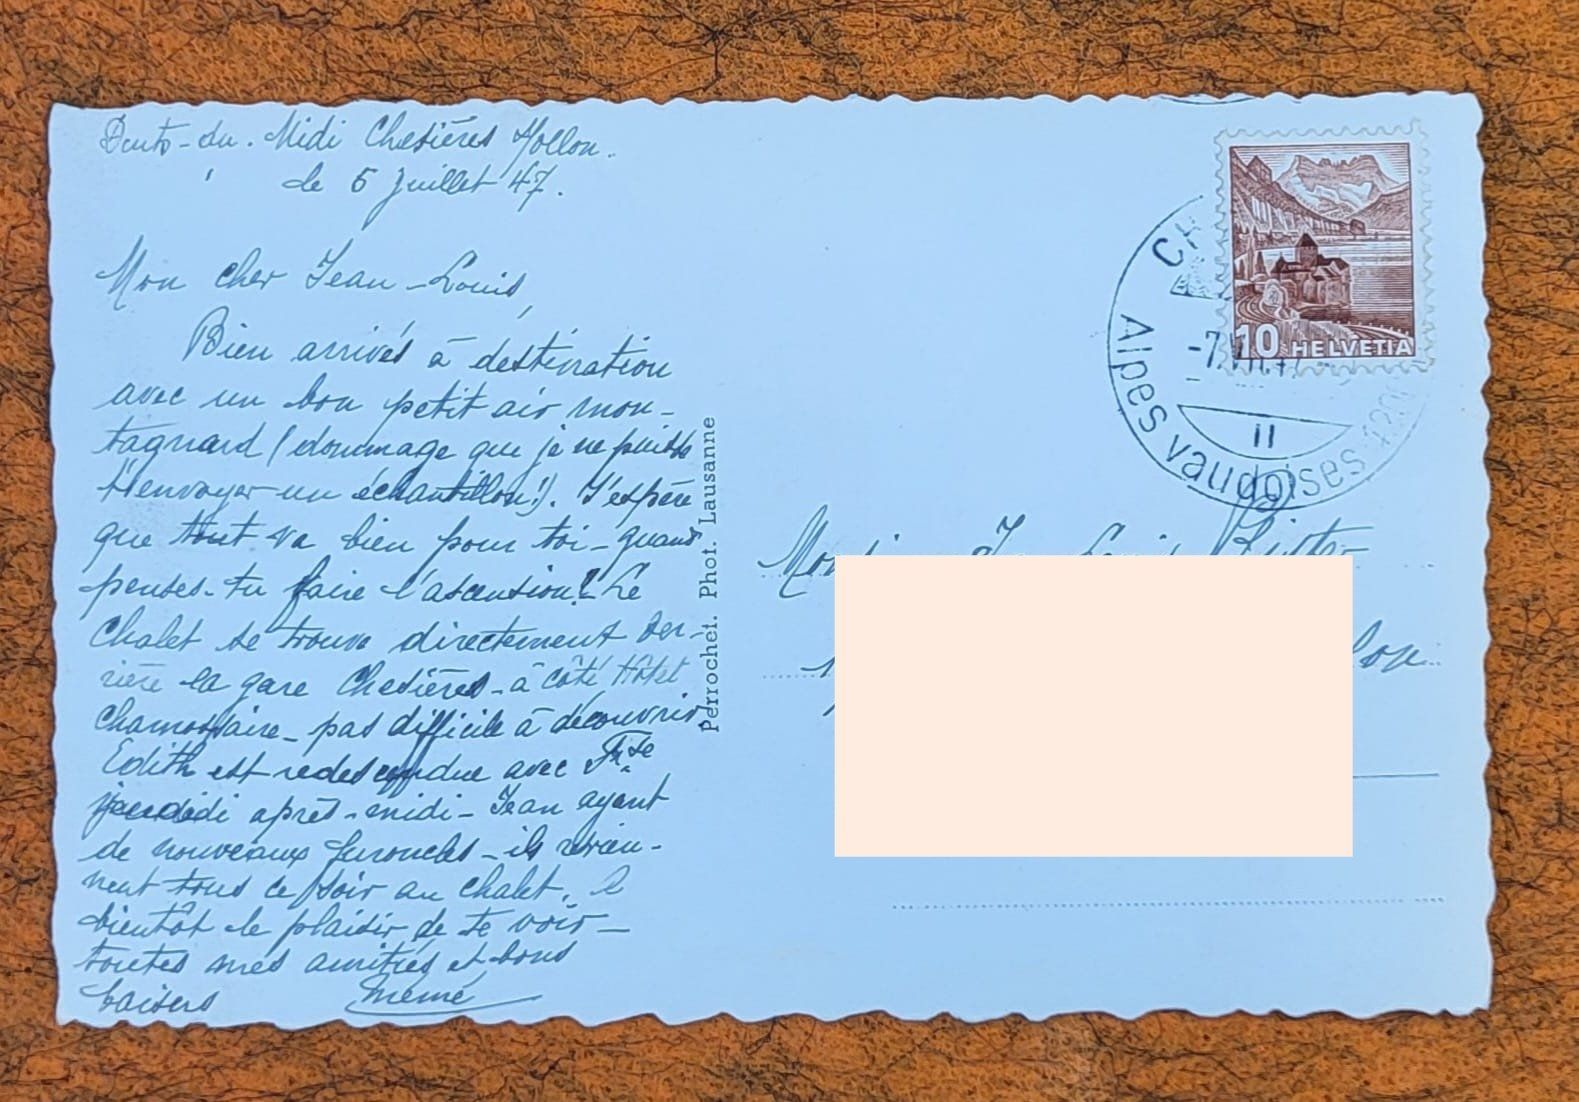 Dents-du-Midi Chesières s/Ollon.
le 5 juillet 47.
Mon cher Jean-Louis,
Bien arrivés à destination
avec un bon petit air mon-
tagnard (dommage que je ne puisse
t'envoyer un échantillon!). J'espère
que tout va bien pour toi - quand
penses-tu faire l'ascension? Le
Chalet se trouve directement der-
rière la gare Chesières - à côté Hôtel
Chamossaire - pas difficile à découvrir
Edith est redescendue avec Fse
jeudi après-midi - Jean ayant
de nouveaux furoncles - ils revien-
nent tous ce soir au chalet. à
bientôt le plaisir de te voir -
toutes mes amitiés et bons
baisers Mémé
Perrochet. Phot. Lausanne
10 HELVETIA
-7. VII.
II
Alpes vaudoises
Jean-Louis Ritter